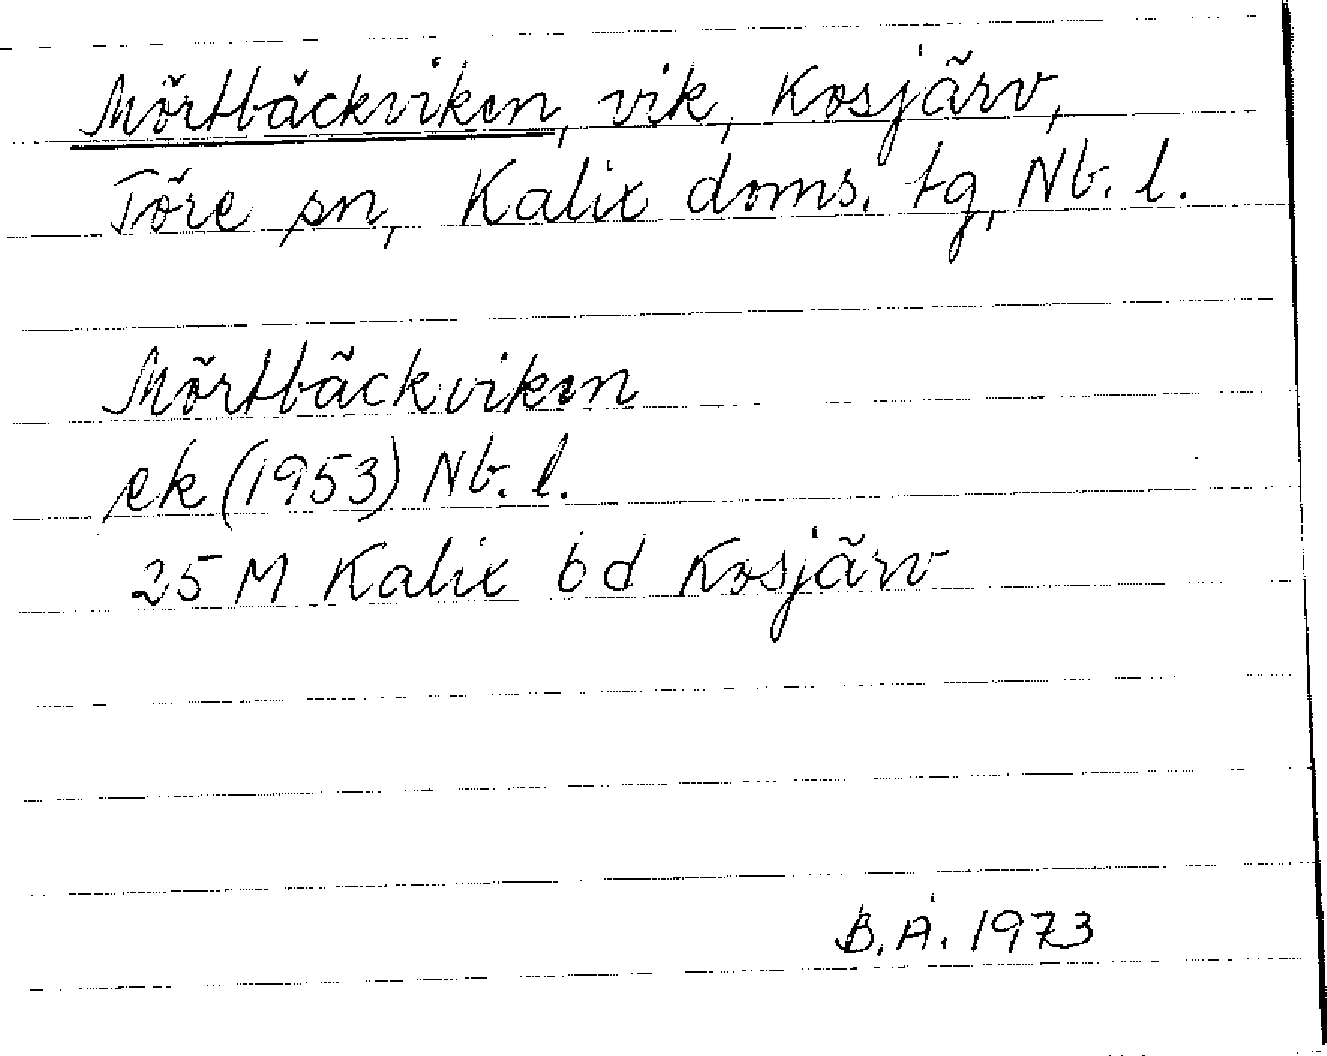 Mörtbäckviken, vik, Kosjärv,
Töre sn, Kalix doms. tg, Nb. l.
Mörtbäckviken
ek (1953) Nb. l.
25 M Kalix 6d Kosjärv
B.Å. 1973